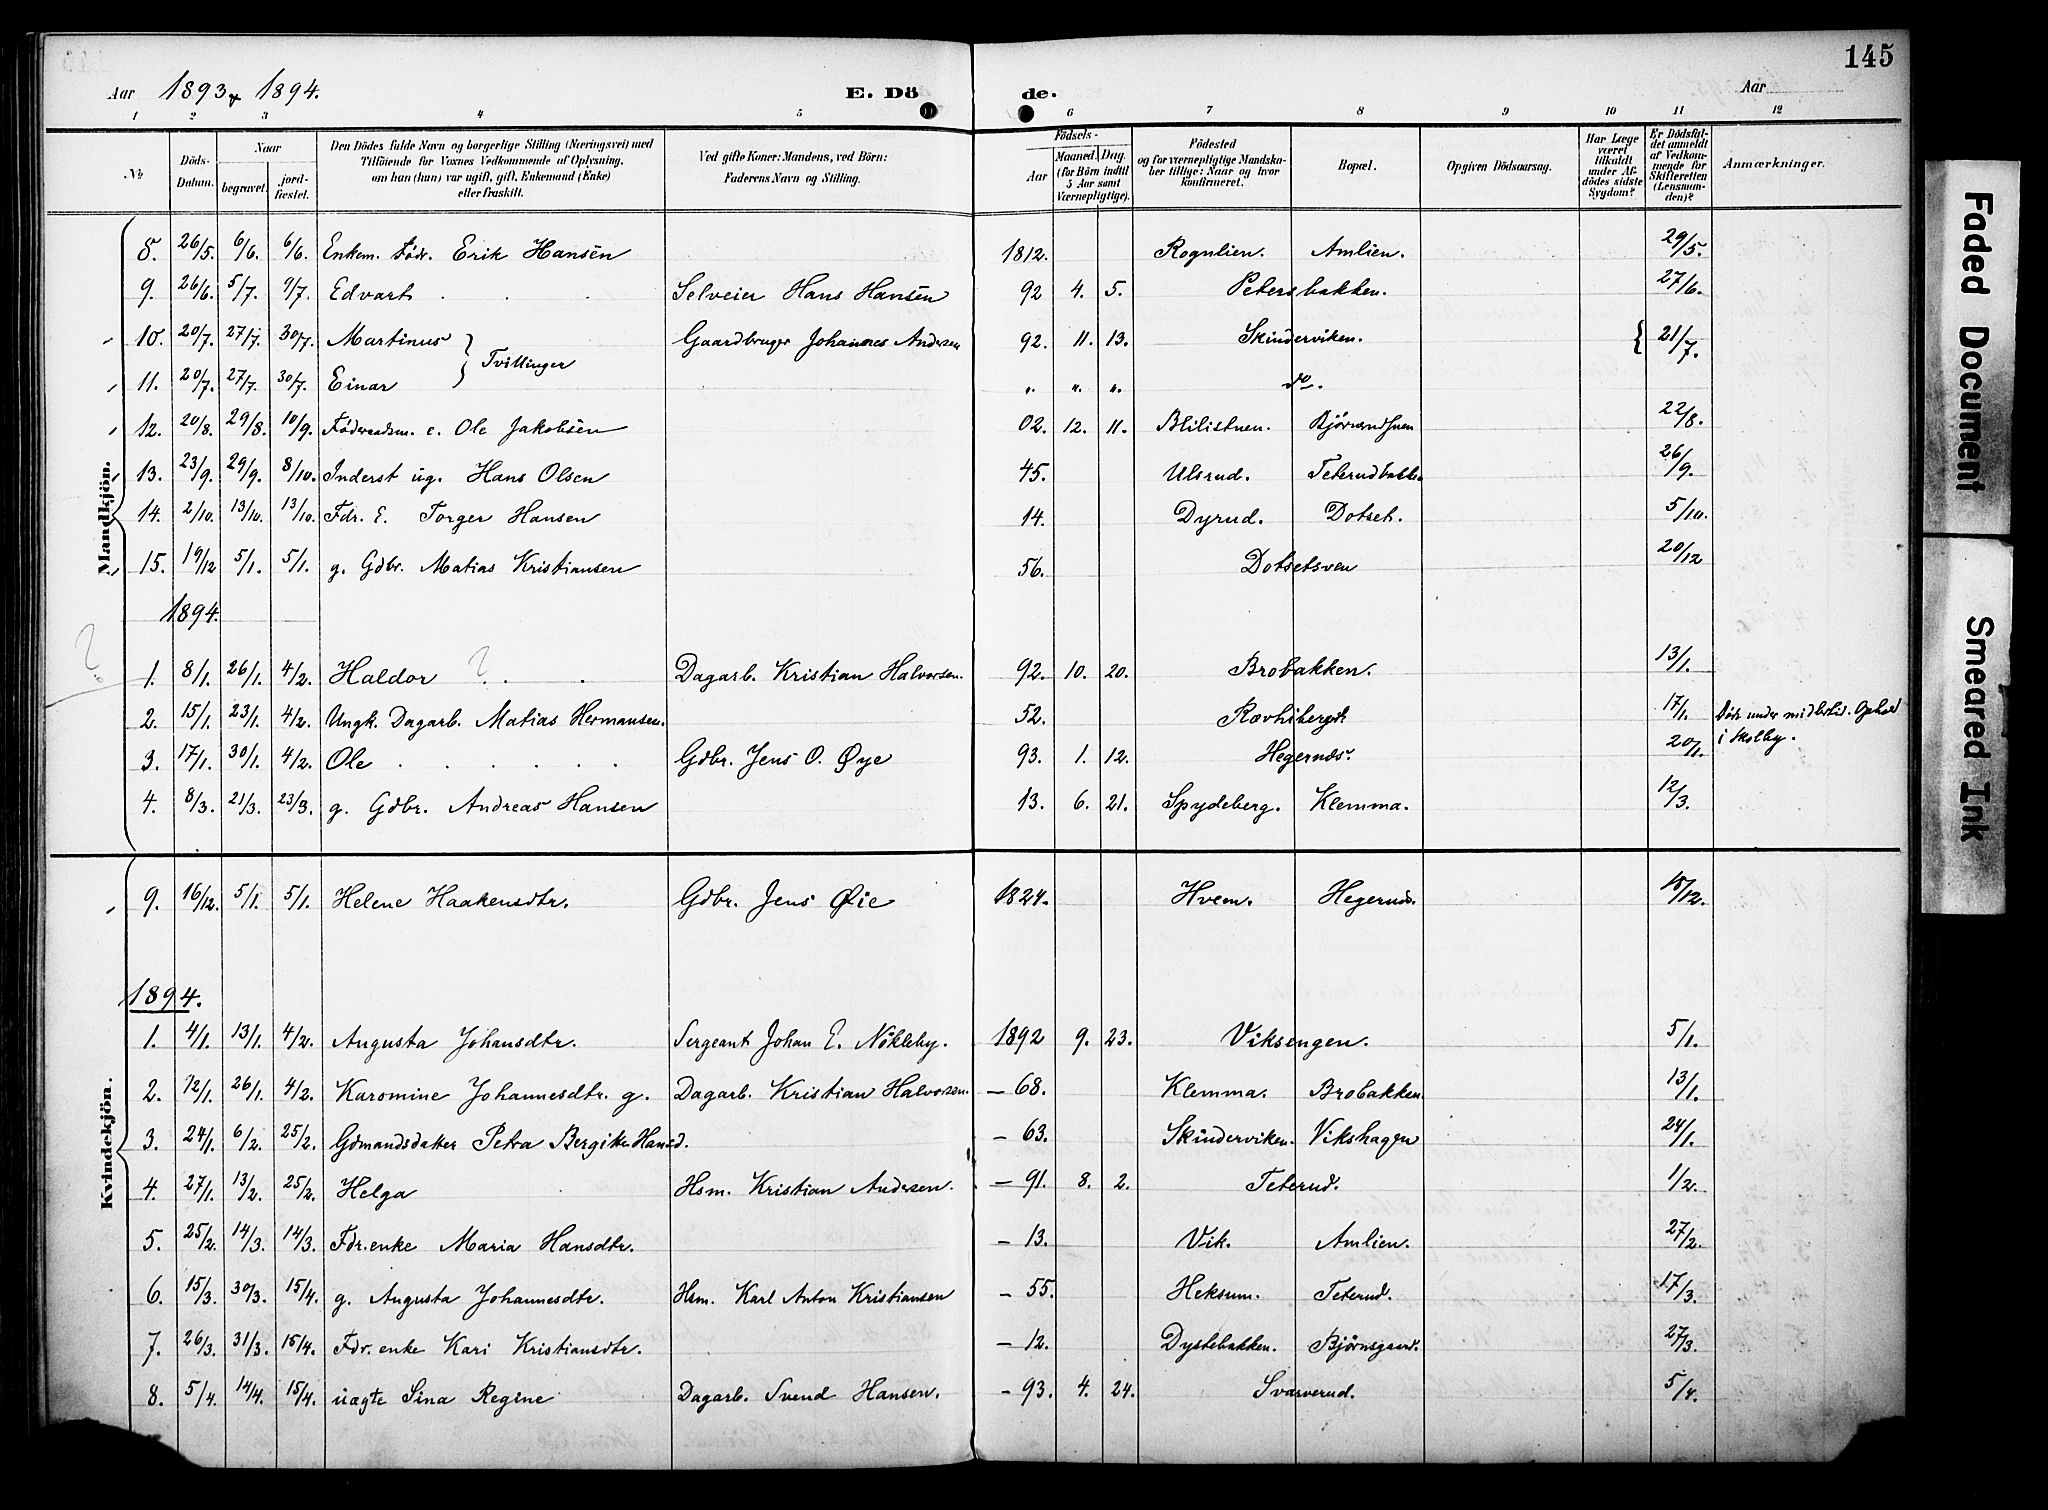 145
Aar 1893 & 1894. E. Dö de. Aar
1 2 3 4 5 6 7 8 9 10 11 12
№ Döds-Datum. Naar begravet. jordfæstet. Den Dödes fulde Navn og borgerlige Stilling (Næringsvei) med Tilföiende for Voxnes Vedkommende af Oplysning, om han (hun) var ugift, gift, Enkemand (Enke) eller fraskilt. Ved gifte Koner: Mandens, ved Börn: Faderens Navn og Stilling. Födsels- Aar Maaned. Dag. (for Börn indtil 5 Aar samt Værnepligtige). Födested og for værnepligtige Mandskaber tillige: Naar og hvor konfirmeret. Bopæl. Opgiven Dödsaarsag. Har Læge været tilkaldt under Afdödes sidste Sygdom? Er Dödsfaldet anmeldt af Vedkommende for Skifteretten (Lensmanden)? Anmærkninger.
Mandkjön.
8. 26/5. 6/6. 6/6. Enkem. Födr. Erik Hansen 1812. Rognlien. Amlien. 29/5.
9. 26/6. 5/7. 9/7. Edvart Selveier Hans Hansen 92 4. 5. Petersbakken. 27/6.
10. 20/7. 27/7. 30/7. Martinus } Tvillinger Gaardbruger Johannes Andersen 92. 11. 13. Skinderviken. { 21/7.
11. 20/7. 27/7. 30/7. Einar „ „ „ do.
12. 20/8. 29/8. 10/9. Föderaadsm. e. Ole Jakobsen 02. 12. 11. 22/8.
13. 23/9. 29/9. 8/10. Inderst ug. Hans Olsen 45. Ulsrud. Teterudbakken 26/9.
14. 2/10. 13/10. 13/10. Fdr. E. Torger Hansen 14. Dyrud. Dotset. 5/10.
15. 19/12 5/1. 5/1. g. Gdbr. Matias Kristiansen 56. Dotsetsven 20/12
1894.
1. 8/1. 26/1. 4/2. Haldor ? Dagarb. Kristian Halvorsen. 92. 10. 20. Brobakken. 13/1.
2. 15/1. 23/1. 4/2. Ungk. Dagarb. Matias Hermansen. 52. 17/1. Död under midlertid. Ophold
i Skolby.
3. 17/1. 30/1. 4/2. Ole Gdbr. Jens O. Øye 93. 1. 12. Hegernæs. 20/1.
4. 8/3. 21/3. 23/3. g. Gdbr. Andreas Hansen 13. 6. 21. Spydeberg. Klemma. 12/3.
Kvindekjön.
9. 16/12. 5/1. 5/1. Helene Haakensdtr. Gdbr. Jens Øie 1824. Hvem. Hegernæs. 18/12.
1894.
1. 4/1. 13/1. 4/2. Augusta Johansdtr. Sergeant Johan E. Nökleby. 1892 9. 23. Viksengen. 5/1.
2. 12/1. 26/1. 4/2. Karomine Johannesdtr. g. Dagarb. Kristian Halvorsen. — 68. Klemma. Brobakken. 13/1.
3. 24/1. 6/2. 25/2. Gdmandsdatter Petra Bergitte Hansd. — 63. Skinderviken. Vikshagen 24/1.
4. 27/1. 13/2. 25/2. Helga Hsm. Kristian Andersen. — 91. 8. 2. Teterud. 1/2.
5. 25/2. 14/3. 14/3. Fdr.enke Maria Hansdtr. — 13. Vik. Amlien. 27/2.
6. 15/3. 30/3. 15/4. g. Augusta Johannesdtr. Hsm. Karl Anton Kristiansen — 55. Heksum. Teterud. 17/3.
7. 26/3. 31/3. 15/4. Fdr. enke Kari Kristiansdtr. — 12. Dystebakken. Björnsgaard. 27/3.
8. 5/4. 14/4. 15/4. uægte Sina Regine Dagarb. Svend Hansen. — 93. 4. 24. Svarverud. 5/4.
Faded Document
Smeared Ink